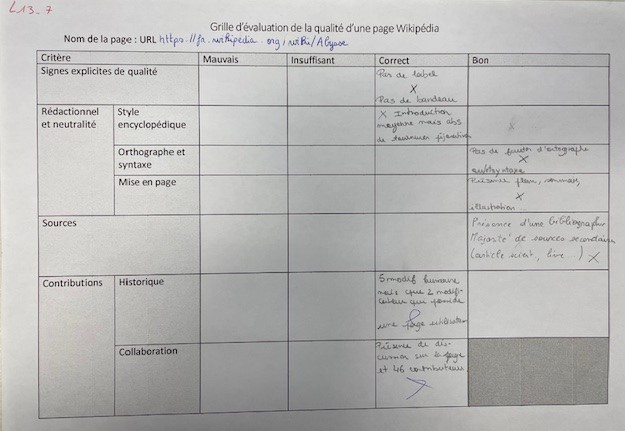 L13_7
Grille d'évaluation de la qualité d'une page Wikipédia
Nom de la page : URL https://fr.wikipedia.org/wiki/Abysse
Critère Mauvais Insuffisant Correct Bon
Signes explicites de qualité
Pas de label
X
Pas de bandeau
Rédactionnel et neutralité
Style encyclopédique
X Introduction
moyenne mais abs
de tournures péjoratives
X
Orthographe et syntaxe
Pas de faute d'ortographe
X
syntaxe
Mise en page
Présence plan, sommaire,
X
illustration
Sources
Présence d'une bibliographie
Majorité de sources secondaires
(article scient, livre...) X
Contributions
Historique
5 modif humaine
mais que 2 modifi-
cateur qui possède
une page utilisateur
Collaboration
Présence de dis-
cussion sur la page
et 46 contributeurs
X